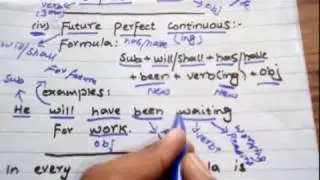 verb
(iv) Future perfect continuous:-
will/shall has/have (ing)
Formula:
Sub + will/shall + has/have
+ been + verb(ing) + obj
Sub new new
examples:
He will have been waiting
For work.
obj verb
In every la is